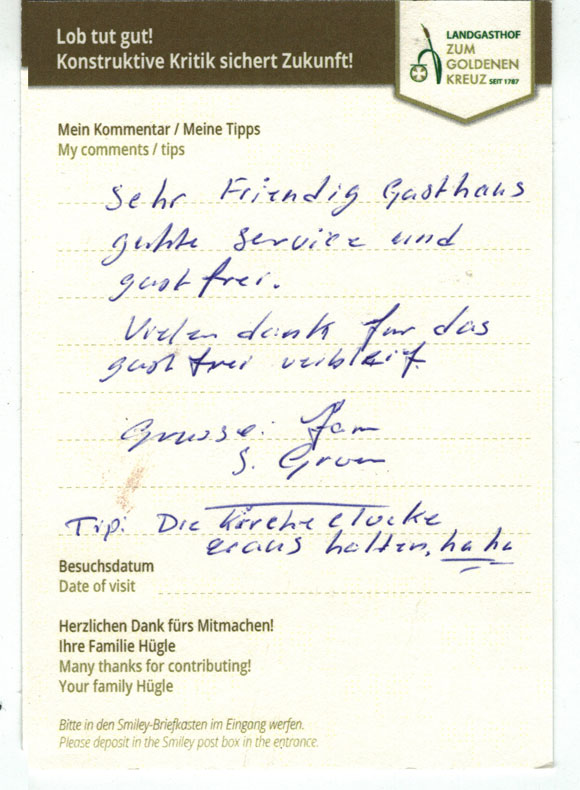 Lob tut gut!
Konstruktive Kritik sichert Zukunft!
LANDGASTHOF
ZUM
GOLDENEN
KREUZ SEIT 1787
Mein Kommentar / Meine Tipps
My comments / tips
Sehr Friendig Gasthaus
guhte Service und
gast frei.
Vielen dank fur das
gast frei verbleif.
Grusse: Fam
S. Groen
Tip: Die Kirche Clocke
eraus halten, ha ha
Besuchsdatum
Date of visit
Herzlichen Dank fürs Mitmachen!
Ihre Familie Hügle
Many thanks for contributing!
Your family Hügle
Bitte in den Smiley-Briefkasten im Eingang werfen.
Please deposit in the Smiley post box in the entrance.